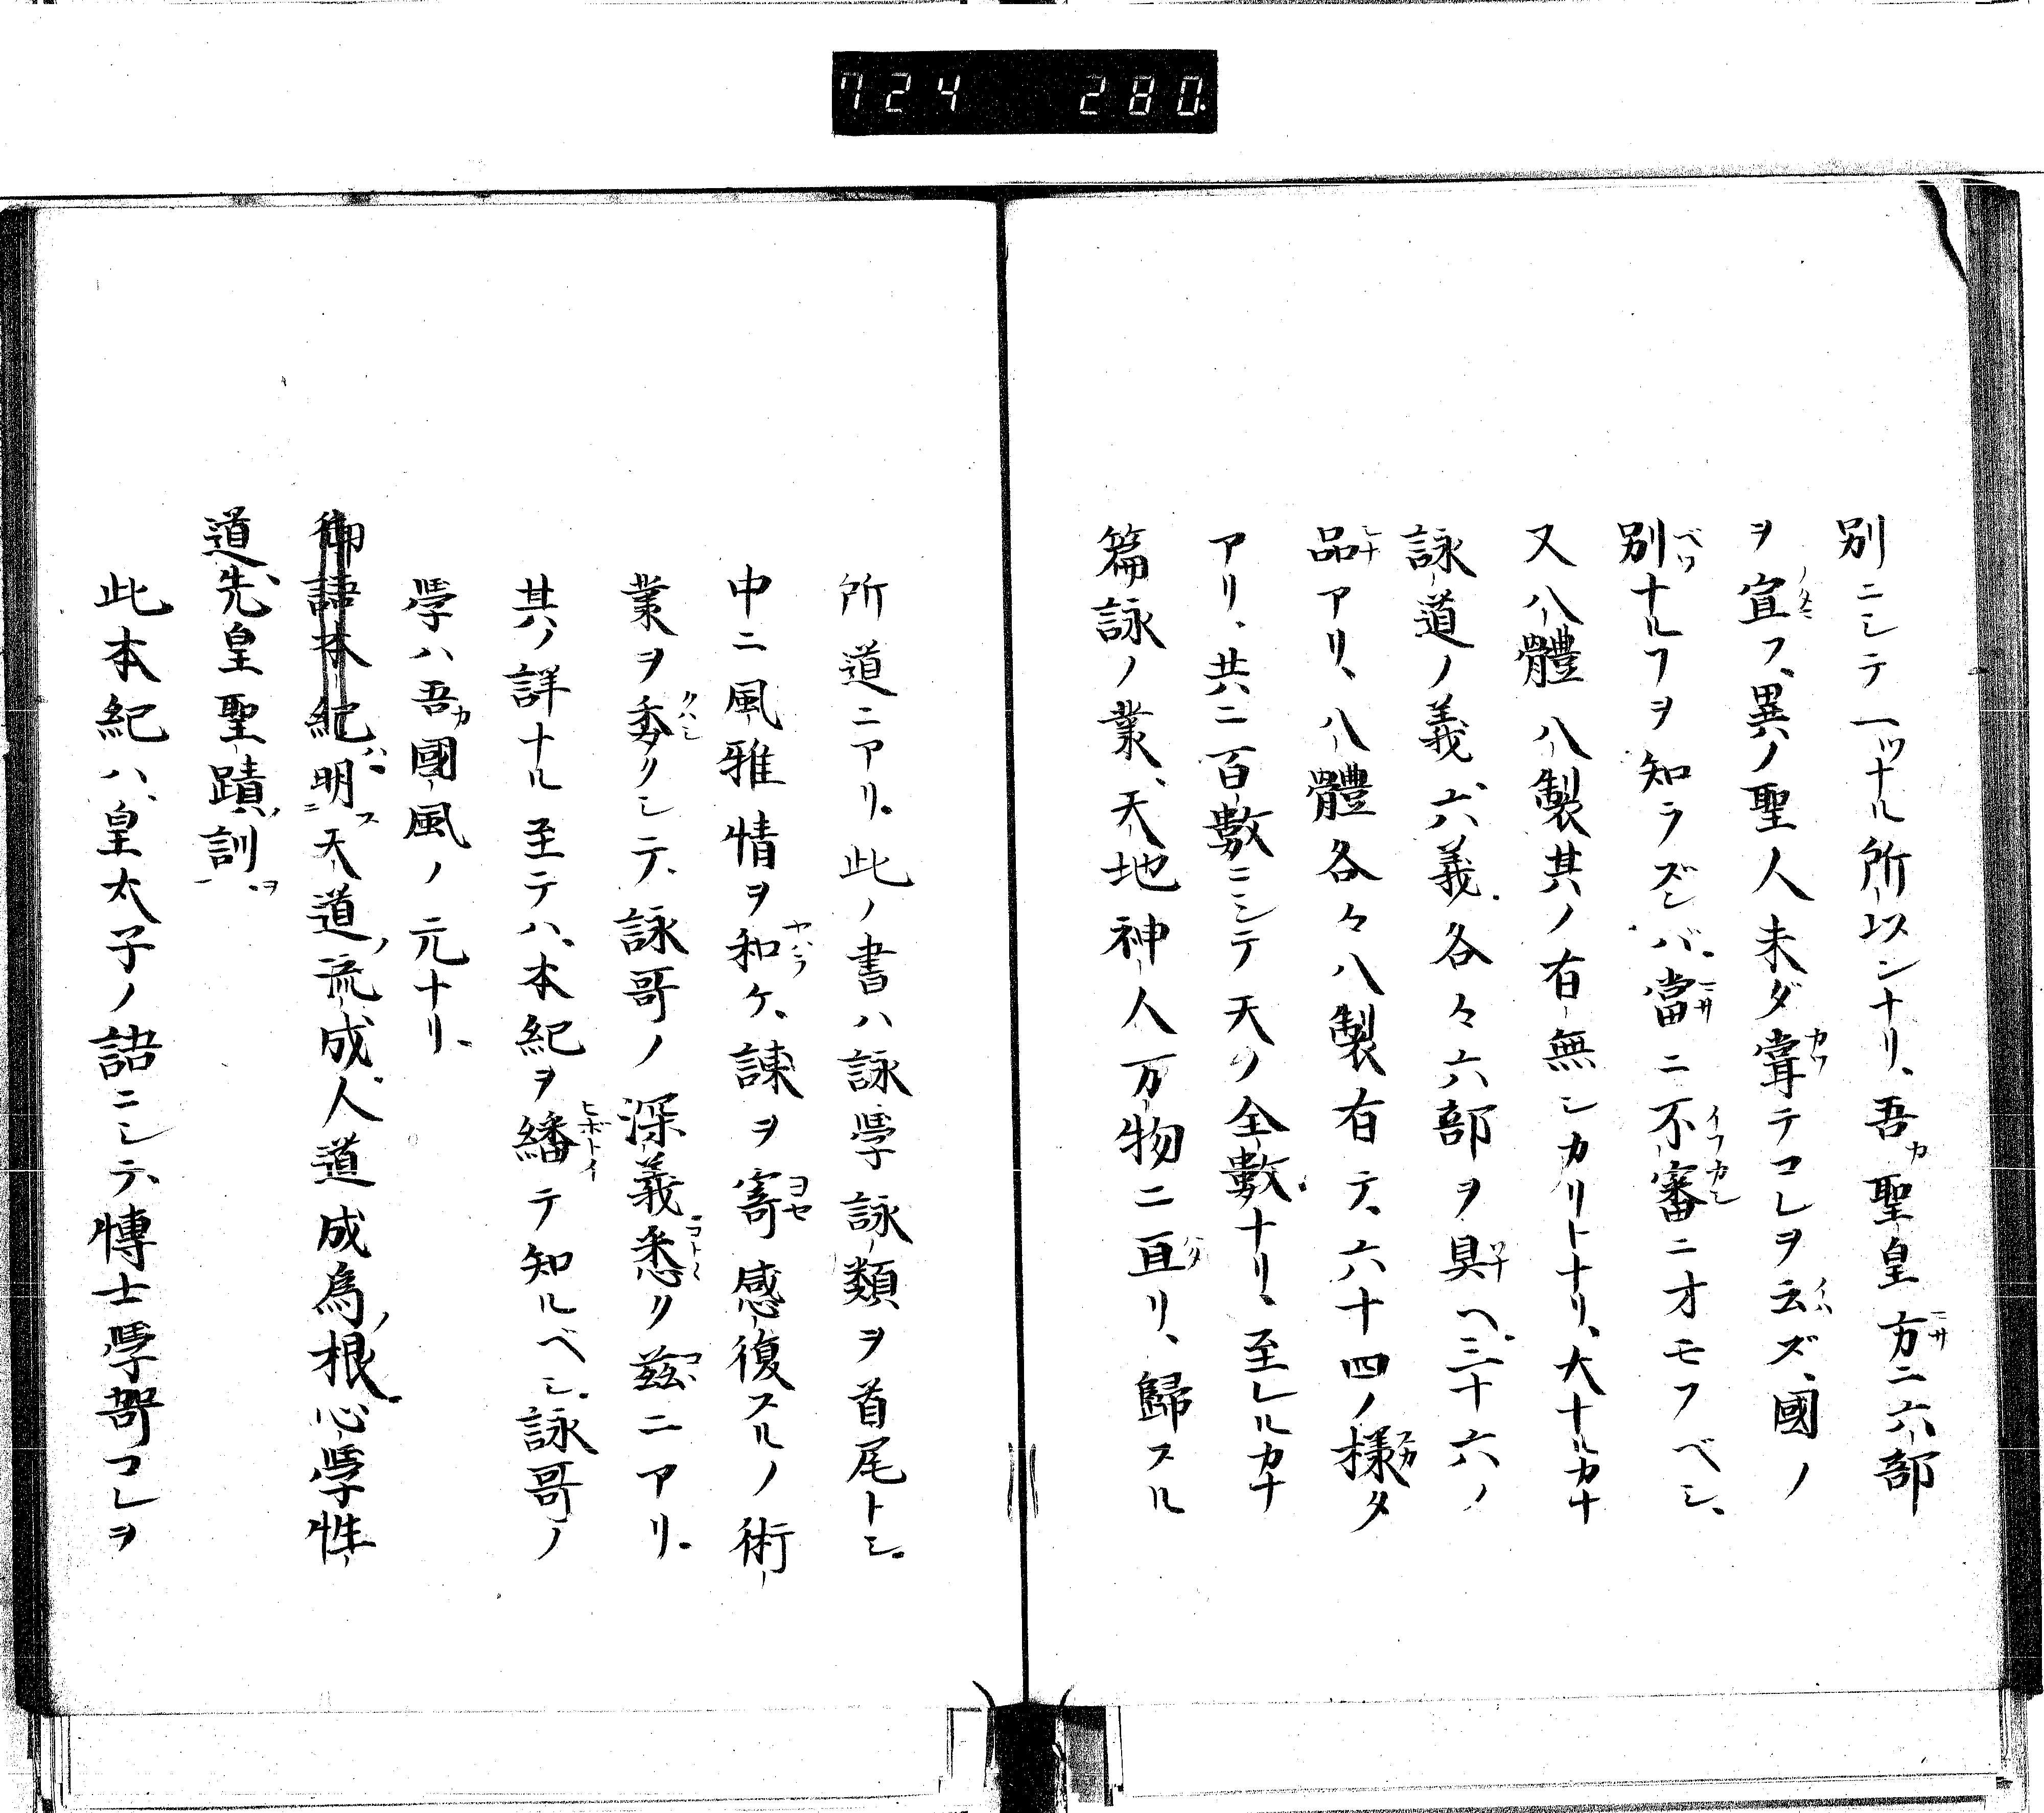 724 280
別ニシテ一ツナル所以ンナリ、吾カ聖皇方ニ六部
ヲ宣フ、異ノ聖人未ダ甞テコレヲ云ズ、國ノ
別ナルフヲ知ラズンバ、當ニ不審ニオモフベシ、
又八體八製其ノ有無シカリトナリ、大ナルカナ
詠道ノ義、六義各々六部ヲ具ヘ、三十六ノ
品アリ、八體各々八製有テ、六十四ノ様タ
アリ、共ニ百數ニシテ天ノ全數ナリ、至レルカナ
篇詠ノ業、天地神人万物ニ亘リ、歸スル
所道ニアリ。此ノ書ハ詠學詠類ヲ首尾トシ。
中ニ風雅情ヲ和ケ、諫ヲ寄感復スルノ術
業ヲ委クシテ、詠哥ノ深義悉ク茲ニアリ。
其ノ詳ナル至テハ、本紀ヲ繙テ知ルベシ。詠哥ノ
學ハ吾カ國風ノ元ナリ。
御語本紀ハ明ス天道ノ流成、人道成為ノ根、心學性
道、先皇聖蹟ノ訓ヲ
此本紀ハ、皇太子ノ語ニシテ、博士學哿コレヲ